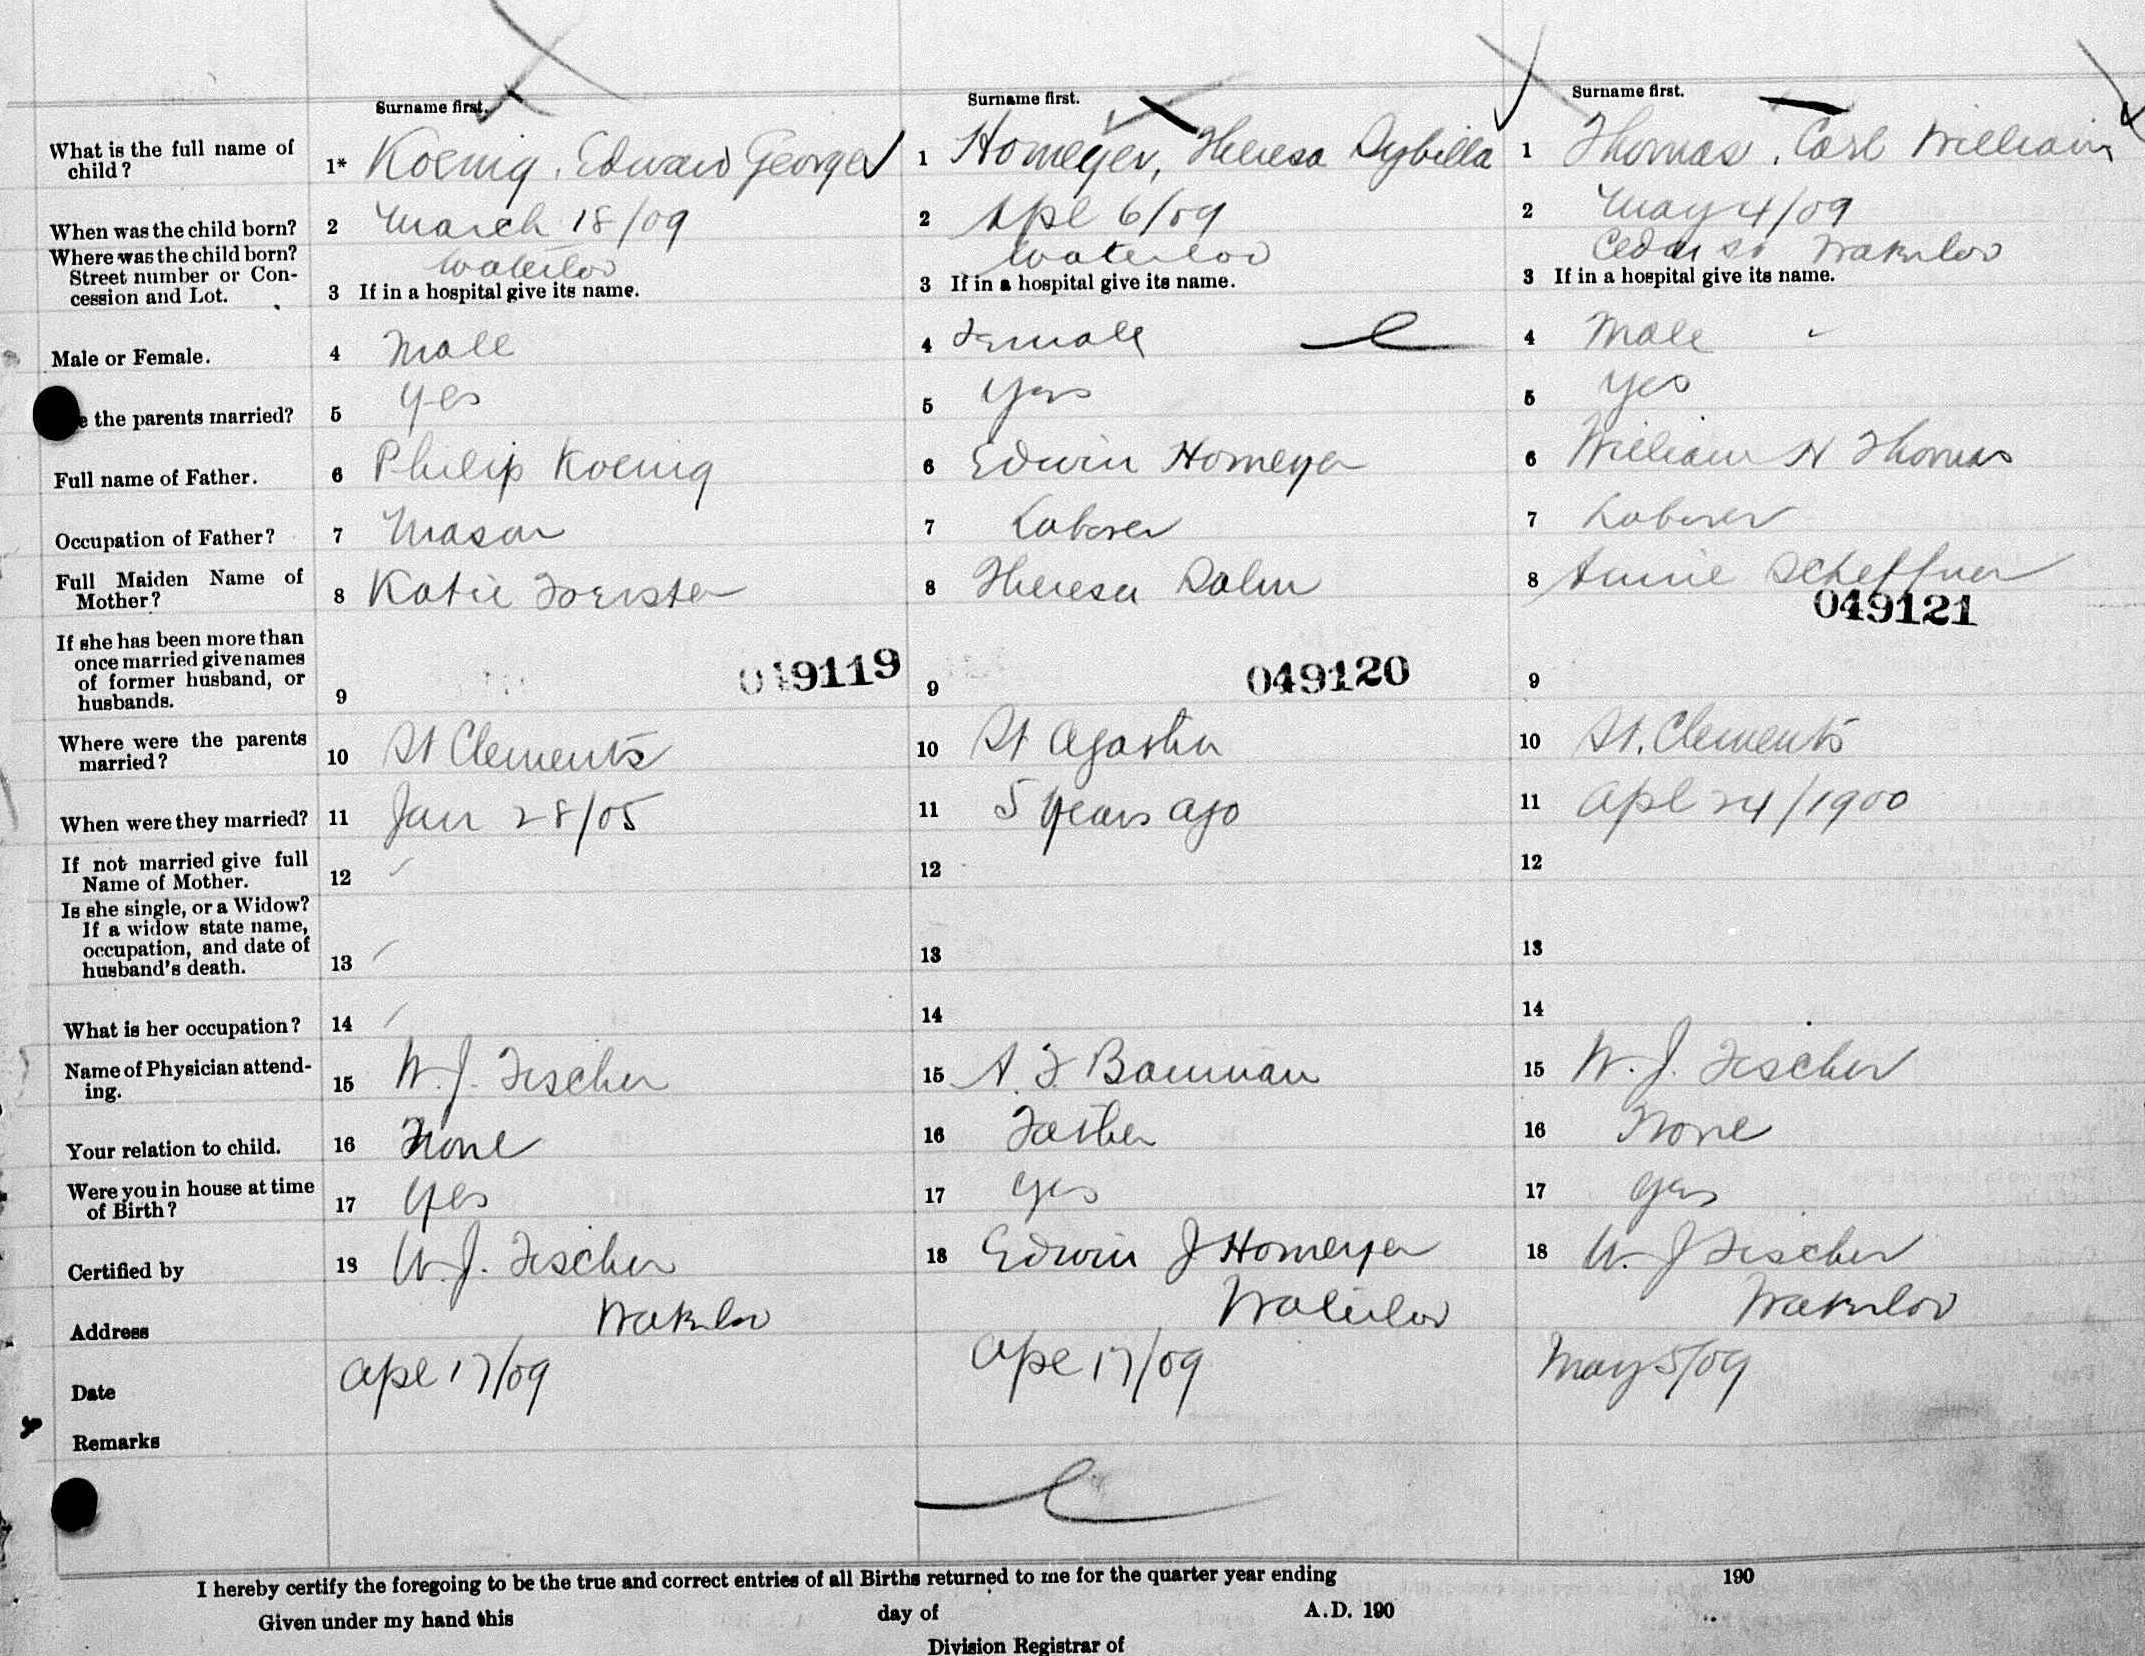 Surname first. Surname first. Surname first.
What is the full name of child? 1* Koenig, Edward George 1 Homeyer, Theresa Sybilla 1 Thomas, Carl William
When was the child born? 2 March 18/09 2 Apl 6/09 2 May 4/09
Where was the child born? Waterloo Waterloo Cedar St Waterloo
Street number or Concession and Lot. 3 If in a hospital give its name. 3 If in a hospital give its name. 3 If in a hospital give its name.
Male or Female. 4 Male 4 Female 4 Male
e the parents married? 5 Yes 5 Yes 5 Yes
Full name of Father. 6 Philip Koenig 6 Edwin Homeyer 6 William H Thomas
Occupation of Father? 7 Mason 7 Laborer 7 Laborer
Full Maiden Name of Mother? 8 Katie Foerster 8 Theresa 8 Annie Scheffner
049121
If she has been more than once married give names of former husband, or husbands. 9 049119 9 049120 9
Where were the parents married? 10 St Clements 10 St Agatha 10 St. Clements
When were they married? 11 Jan 28/05 11 5 Years ago 11 Apl 24/1900
If not married give full Name of Mother. 12 12 12
Is she single, or a Widow? If a widow state name, occupation, and date of husband's death. 13 13 13
What is her occupation? 14 14 14
Name of Physician attending. 15 W. J. Fischer 15 A. F. Bauman 15 W. J. Fischer
Your relation to child. 16 None 16 Father 16 None
Were you in house at time of Birth? 17 Yes 17 Yes 17 Yes
Certified by 18 W. J. Fischer 18 Edwin J Homeyer 18 W. J Fischer
Address Waterloo Waterloo Waterloo
Date Apl 17/09 Apl 17/09 May 5/09
Remarks
I hereby certify the foregoing to be the true and correct entries of all Births returned to me for the quarter year ending 190
Given under my hand this day of A.D. 190
Division Registrar of